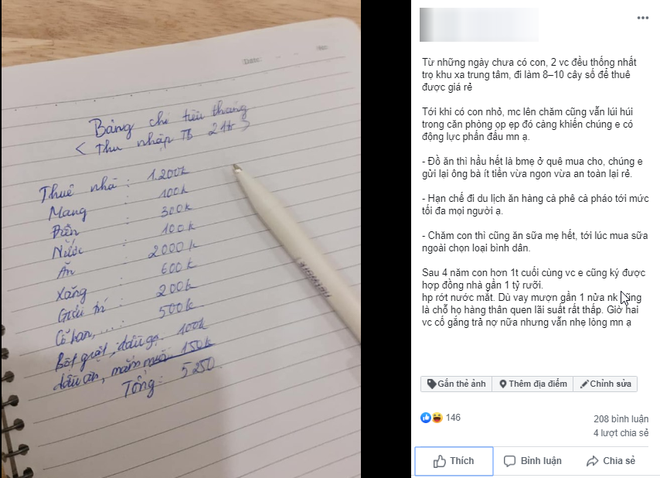 Bảng chi tiêu tháng
< Thu nhập TB 21tr >
Thuê nhà : 1.200k
Mạng : 100k
Điện : 300k
Nước : 100k
Ăn : 2000k
Xăng : 600k
Giải trí : 200k
Cỗ bàn,... : 500k
Bột giặt, dầu gội 100k
dầu ăn, mắm muối 150k
Tổng: 5250
Từ những ngày chưa có con, 2 vc đều thống nhất
trọ khu xa trung tâm, đi làm 8–10 cây số để thuê
được giá rẻ
Tới khi có con nhỏ, mc lên chăm cũng vẫn lúi húi
trong căn phòng ọp ẹp đó càng khiến chúng e có
động lực phấn đấu mn ạ.
- Đồ ăn thì hầu hết là bmẹ ở quê mua cho, chúng e
gửi lại ông bà ít tiền vừa ngon vừa an toàn lại rẻ.
- Hạn chế đi du lịch ăn hàng cà phê cà pháo tới mức
tối đa mọi người ạ.
- Chăm con thì cũng ăn sữa mẹ hết, tới lúc mua sữa
ngoài chọn loại bình dân.
Sau 4 năm con hơn 1t cuối cùng vc e cũng ký được
hợp đồng nhà gần 1 tỷ rưỡi.
hp rớt nước mắt. Dù vay mượn gần 1 nửa nk cũng
là chỗ họ hàng thân quen lãi suất rất thấp. Giờ hai
vc cố gắng trả nợ nữa nhưng vẫn nhẹ lòng mn ạ
Gắn thẻ ảnh Thêm địa điểm Chỉnh sửa
146
208 bình luận
4 lượt chia sẻ
Thích Bình luận Chia sẻ